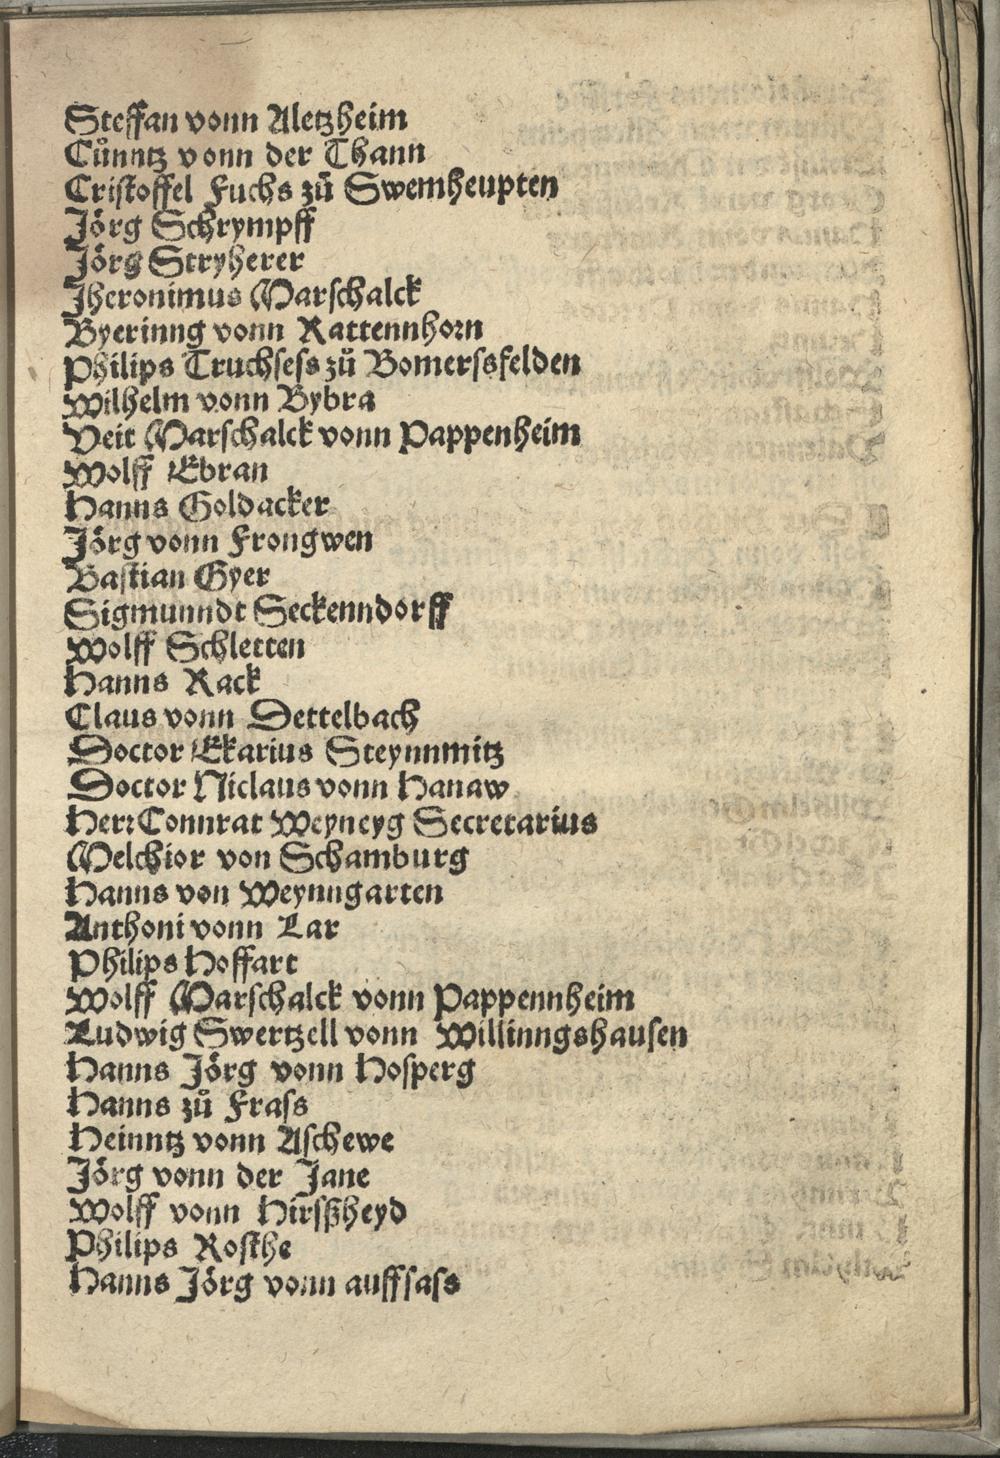 Steffan vonn Aletzheim
Cůnntz vonn der Thann
Cristoffel Fuchs zů Swemheupten
Jörg Schrympff
Jörg Stryherer
Jheronimus Marschalck
Byerinng vonn Rattennhorn
Philips Truchsess zů Bomersfelden
Wilhelm vonn Bybra
Veit Marschalck vonn Pappenheim
Wolff Ebran
Hanns Goldacker
Jörg vonn Frongwen
Bastian Gyer
Sigmunndt Seckenndorff
Wolff Schletten
Hanns Rack
Claus vonn Dettelbach
Doctor Ekarius Steynnmitz
Doctor Niclaus vonn Hanaw
Herr Connrat Weyneyg Secretarius
Melchior von Schamburg
Hanns von Weynngarten
Anthoni vonn Lar
Philips Hoffart
Wolff Marschalck vonn Pappennheim
Ludwig Swertzell vonn Willinngshausen
Hanns Jörg vonn Hosperg
Hanns zů Frass
Heinntz vonn Aschewe
Jörg vonn der Jane
Wolff vonn Hirsßheyd
Philips Rosthe
Hanns Jörg vonn auffsass